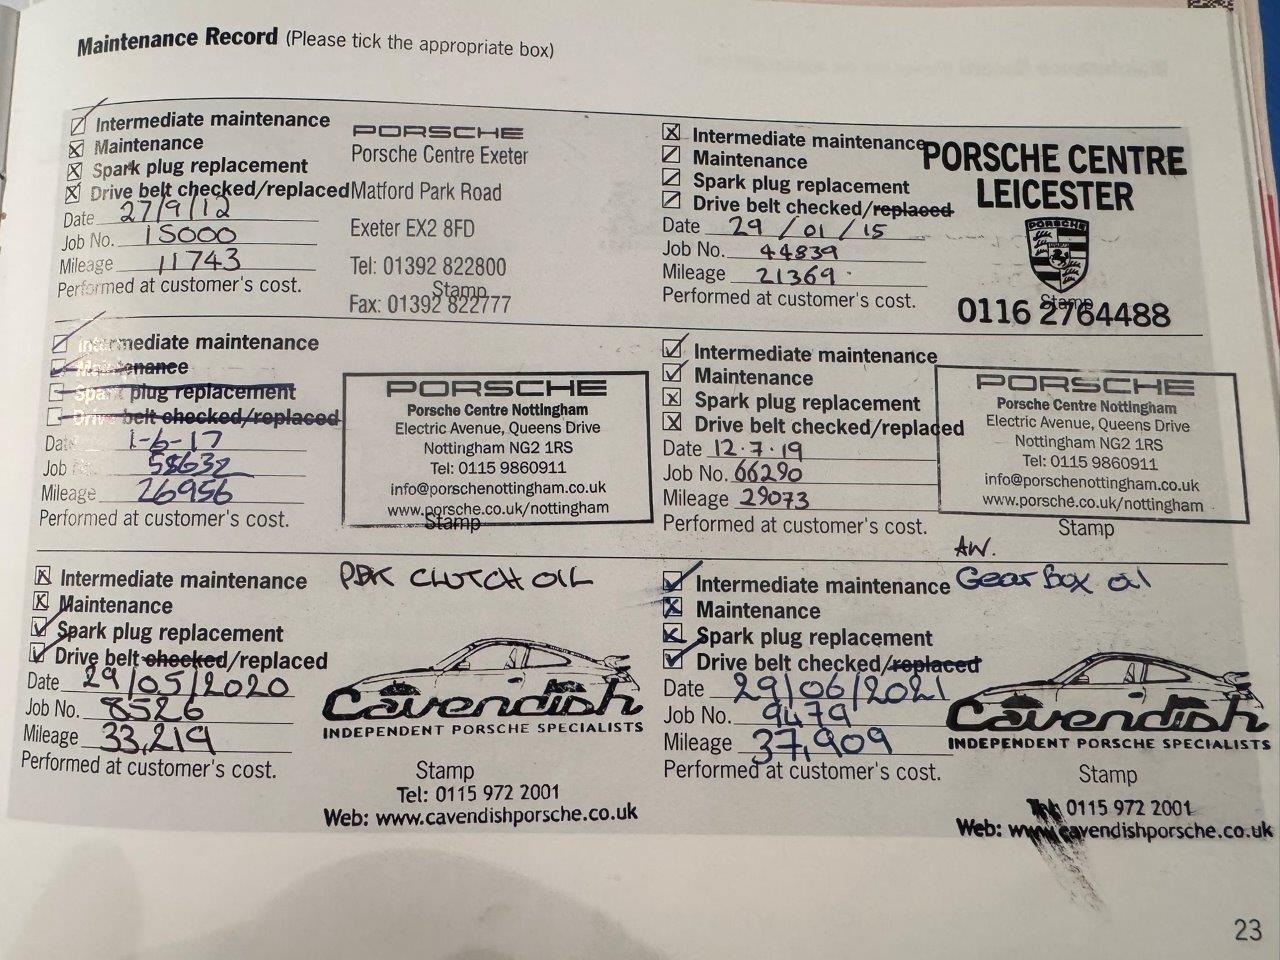 Maintenance Record (Please tick the appropriate box)
Intermediate maintenance
Maintenance
Spark plug replacement
Drive belt checked/replaced
Date 27/9/12
Job No. 15000
Mileage 11743
Performed at customer's cost.
PORSCHE
Porsche Centre Exeter
Matford Park Road
Exeter EX2 8FD
Tel: 01392 822800
Stamp
Fax: 01392 822777
Intermediate maintenance
Maintenance
Spark plug replacement
Drive belt checked/replaced
Date 29/01/15
Job No. 44839
Mileage 21369
Performed at customer's cost.
PORSCHE CENTRE
LEICESTER
PORSCHE
Stamp
0116 2764488
Intermediate maintenance
Maintenance
Spark plug replacement
Drive belt checked/replaced
Date 1-6-17
Job 58632
Mileage 26956
Performed at customer's cost.
PORSCHE
Porsche Centre Nottingham
Electric Avenue, Queens Drive
Nottingham NG2 1RS
Tel: 0115 9860911
info@porschenottingham.co.uk
www.porsche.co.uk/nottingham
Stamp
Intermediate maintenance
Maintenance
Spark plug replacement
Drive belt checked/replaced
Date 12.7.19
Job No. 66290
Mileage 29073
Performed at customer's cost.
PORSCHE
Porsche Centre Nottingham
Electric Avenue, Queens Drive
Nottingham NG2 1RS
Tel: 0115 9860911
info@porschenottingham.co.uk
www.porsche.co.uk/nottingham
Stamp
AW.
Intermediate maintenance
Maintenance
Spark plug replacement
Drive belt checked/replaced
Date 29/05/2020
Job No. 8526
Mileage 33,219
Performed at customer's cost.
PDK CLUTCH OIL
Cavendish
INDEPENDENT PORSCHE SPECIALISTS
Stamp
Tel: 0115 972 2001
Web: www.cavendishporsche.co.uk
Intermediate maintenance
Maintenance
Spark plug replacement
Drive belt checked/replaced
Date 29/06/2021
Job No. 9479
Mileage 37,909
Performed at customer's cost.
Gear Box oil
Cavendish
INDEPENDENT PORSCHE SPECIALISTS
Stamp
Tel: 0115 972 2001
Web: www.cavendishporsche.co.uk
23